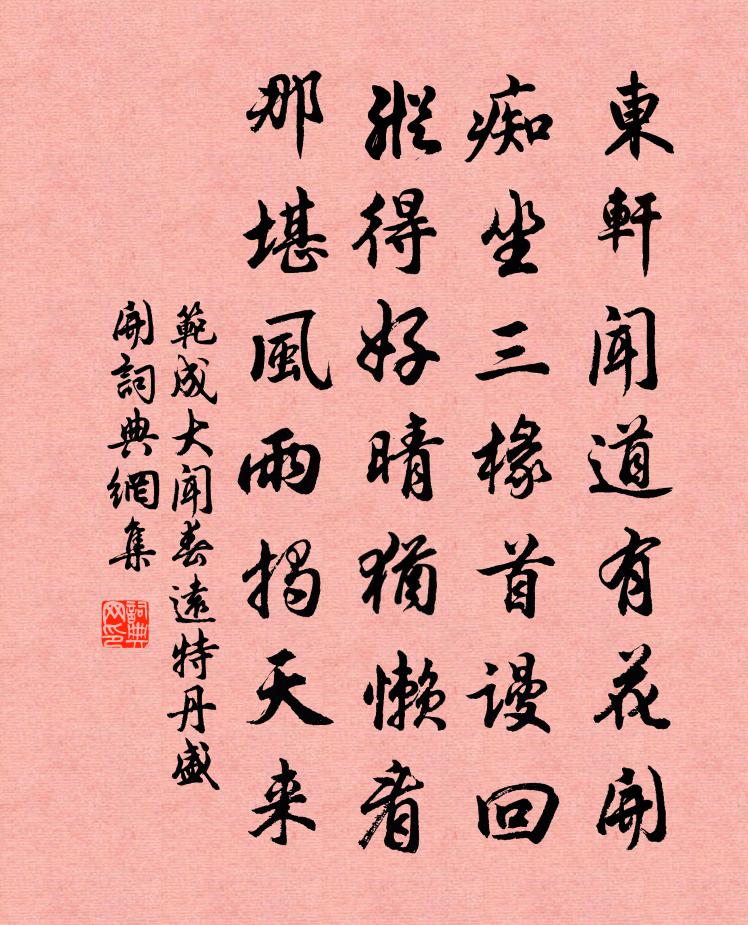 東軒聞道有花開
痴坐三椽首謾回
縱得好晴猶懶看
那堪風雨揭天來
範成大聞春遠特丹盛
開詞典網集
詞典网印